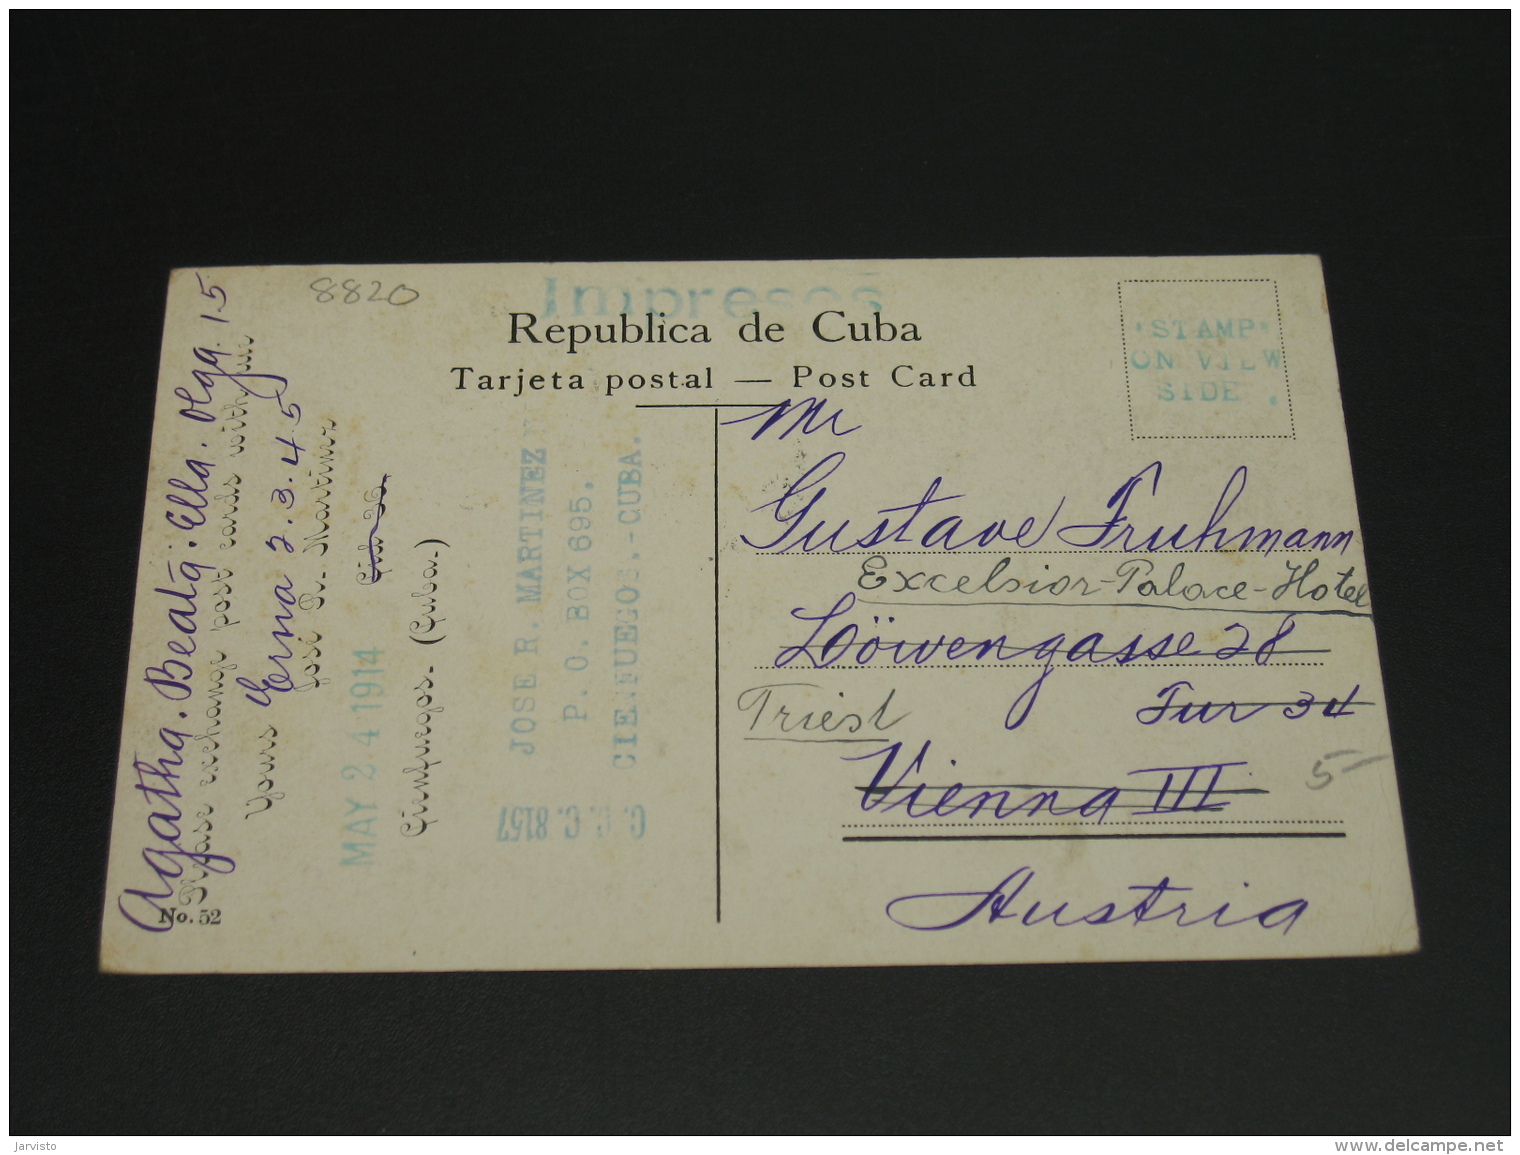 Impresos
Republica de Cuba
Tarjeta postal — Post Card
8820
STAMP
ON VIEW
SIDE
Mr
Gustave Fruhmann
Excelsior-Palace-Hotel
Löwengasse 28
Triest
Tur 34
Vienna III
5-
Austria
Agatha. Beata. Ella. Olga. 15
Please exchange post cards with me
Yours
Erna 2.3.4.5
José R. Martinez
Gid 36
MAY 24 1914
Cienfuegos. (Cuba.)
JOSE R. MARTINEZ
P. O. BOX 695,
CIENFUEGOS,-CUBA.
C. C. C. 8157
No. 52
jarvisto
www.delcampe.net